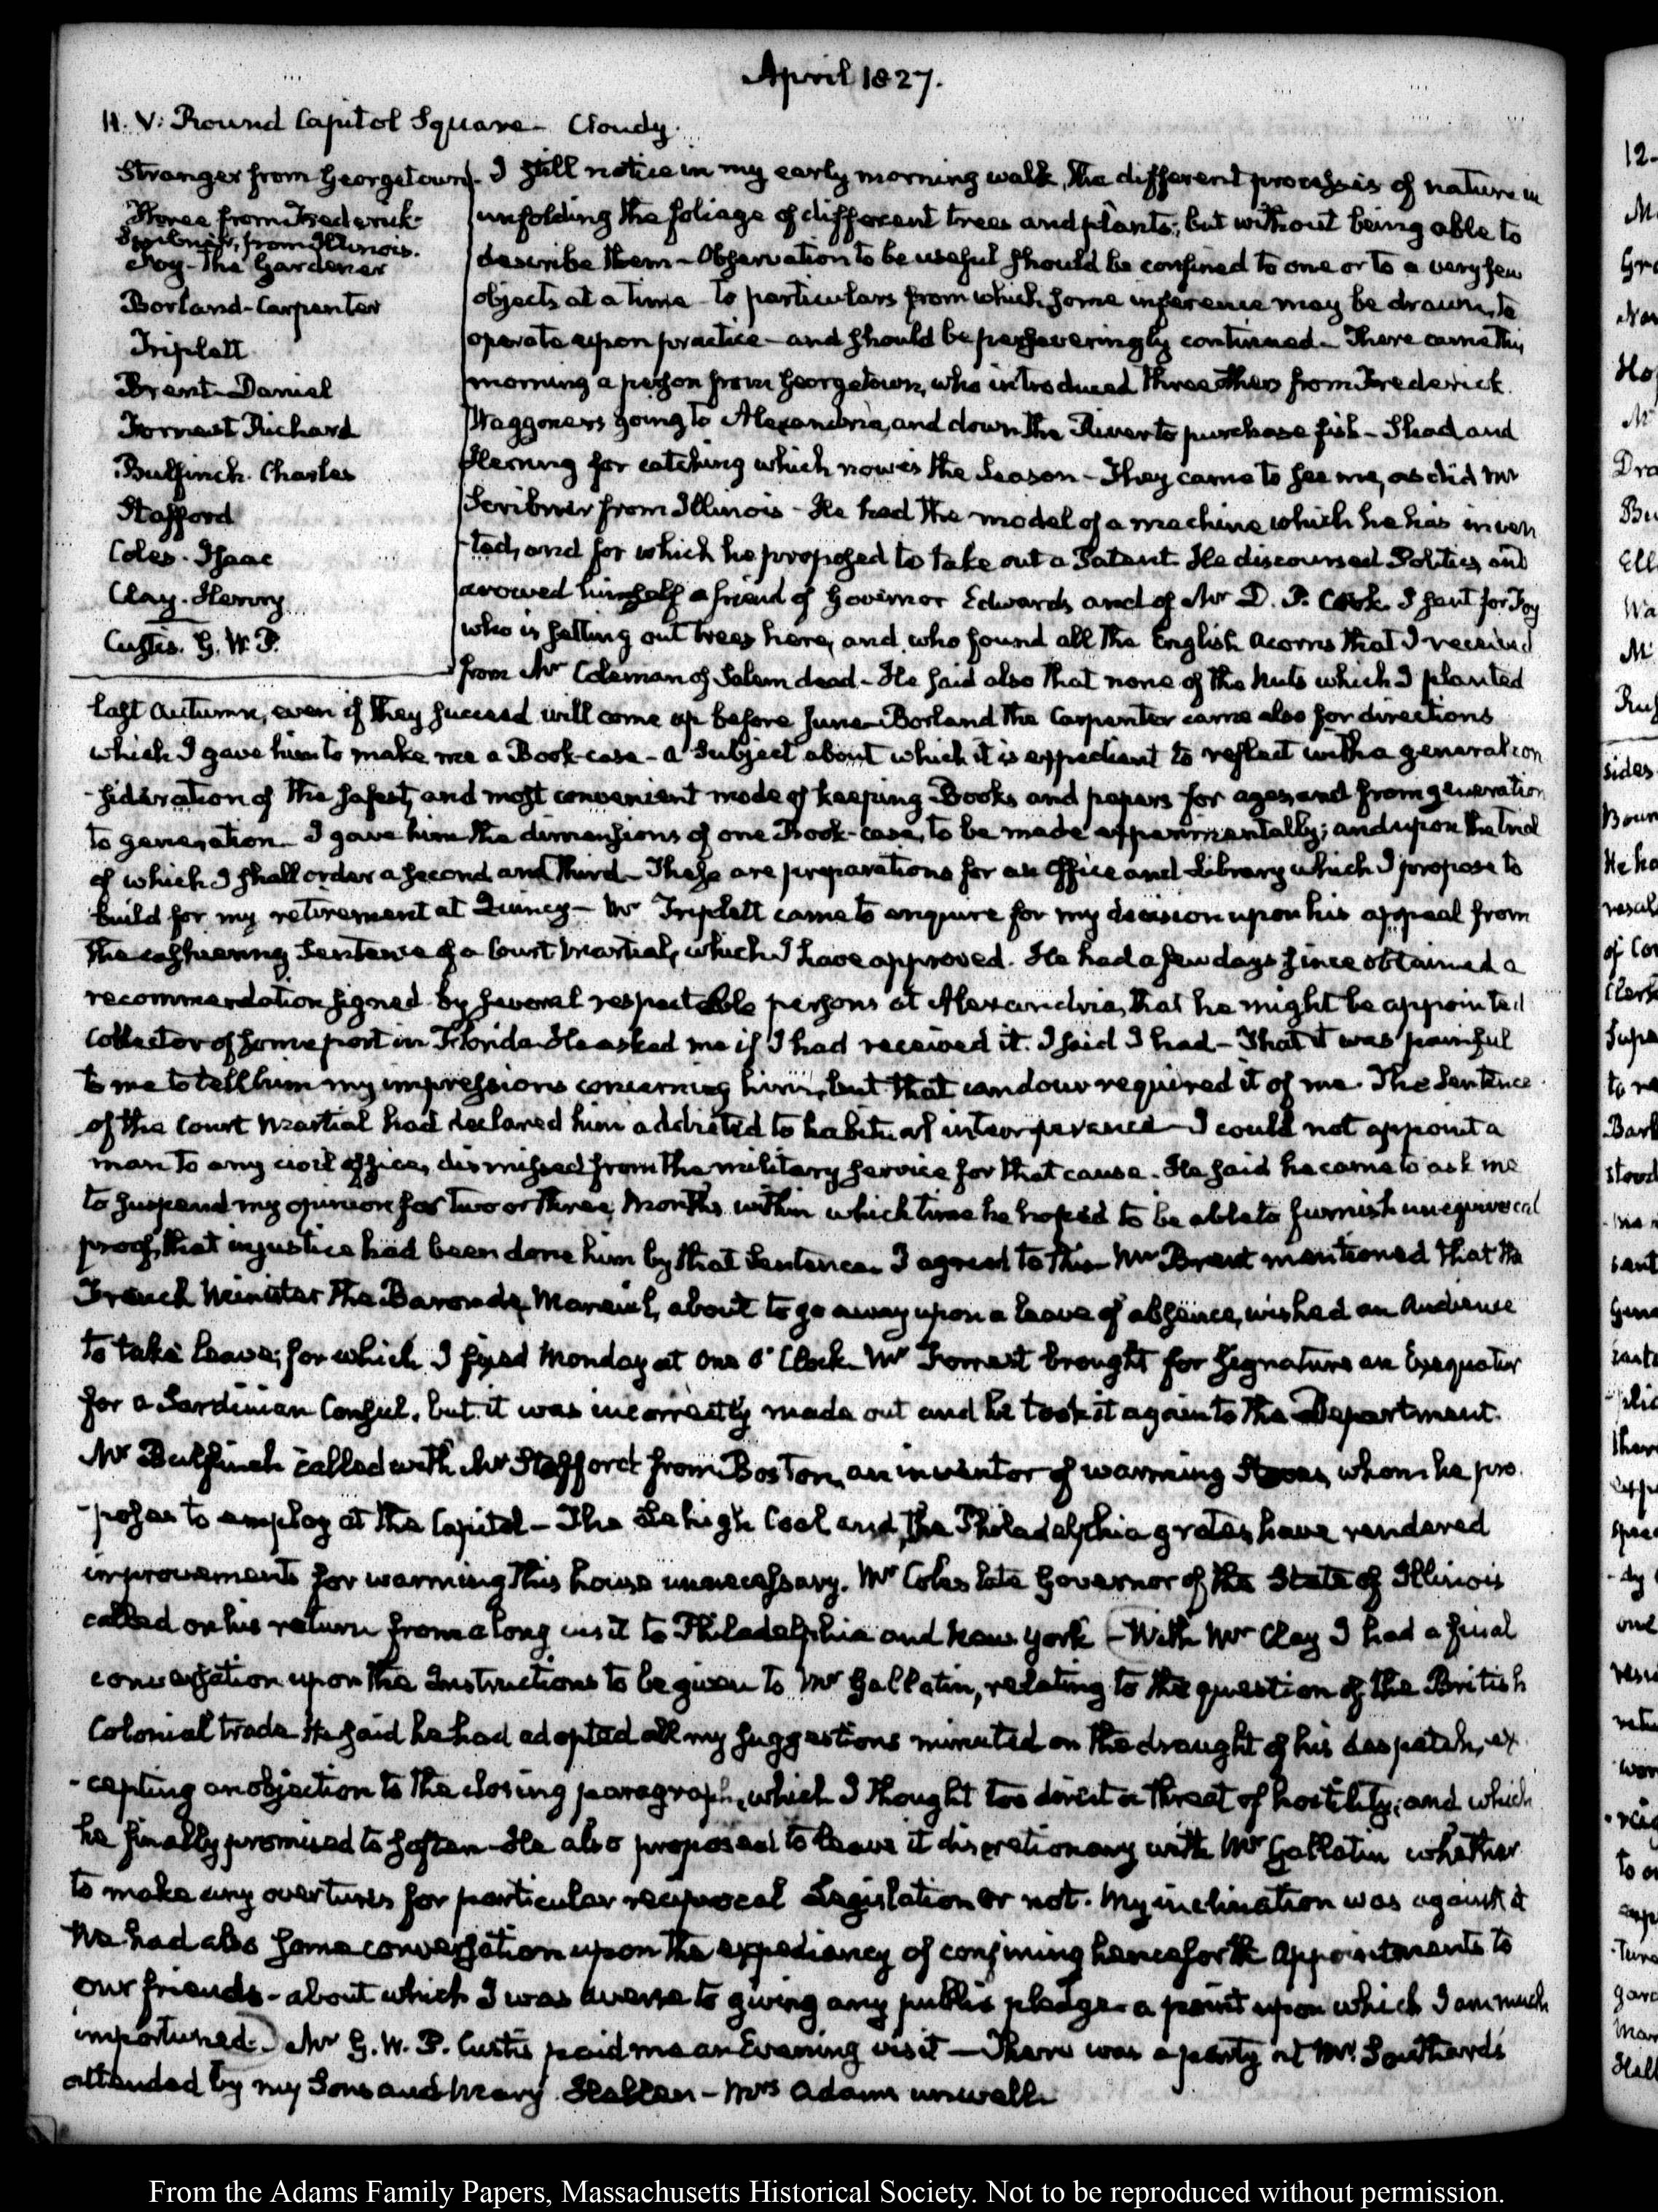 April 1827.
11. V: Round Capitol Square. Cloudy.
Stranger from Georgetown
Three from Frederick
Scribner, from Illinois.
Foy - the Gardener
Borland - Carpenter
Triplett
Brent - Daniel
Forrest Richard
Bulfinch. Charles
Stafford
Coles. Isaac
Clay. Henry
Custis. G. W. P.
I still notice in my early morning walk, the different processes of nature in
unfolding the foliage of different trees and plants; but without being able to
describe them - Observation to be useful should be confined to one or to a very few
objects at a time - to particulars from which some inference may be drawn, to
operate upon practice - and should be perseveringly continued. There came this
morning a person from Georgetown, who introduced three others from Frederick.
Waggoners going to Alexandria, and down the River to purchase fish - Shad and
Herring for catching which now is the Season - They came to see me, as did Mr
Scribner from Illinois - He had the model of a machine which he has inven
-ted, and for which he proposed to take out a Patent. He discoursed Politics, and
avowed himself a friend of Governor Edwards and of Mr D. P. Cook. I sent for Foy
who is setting out trees here, and who found all the English Acorns that I received
from Mr Coleman of Salem dead - He said also that none of the Nuts which I planted
last Autumn, even if they succeed will come up before June - Borland the Carpenter came also for directions
which I gave him to make me a Book-case - a subject about which it is expedient to reflect with a general con
-sideration of the safest, and most convenient mode of keeping Books and papers for ages, and from generation
to generation. I gave him the dimensions of one Book-case, to be made experimentally; and upon the trial
of which I shall order a second and third - These are preparations for an Office and Library which I propose to
build for my retirement at Quincy - Mr Triplett came to enquire for my decision upon his appeal from
the cashiering Sentence of a Court Martial, which I have approved. He had a few days since obtained a
recommendation signed by several respectable persons at Alexandria, that he might be appointed
Collector of some port in Florida. He asked me if I had received it. I said I had - That it was painful
to me to tell him my impressions concerning him, but that candour required it of me. The Sentence
of the Court Martial had declared him addicted to habitual intemperance - I could not appoint a
man to any civil office, dismissed from the military service for that cause. He said he came to ask me
to suspend my opinion for two or three Months within which time he hoped to be able to furnish unequivocal
proof, that injustice had been done him by that Sentence. I agreed to this - Mr Brent mentioned that the
French Minister the Baron de Mareuil, about to go away upon a leave of absence, wished an Audience
to take leave; for which I fixed Monday at One O'Clock. Mr Forrest brought for signature an Exequatur
for a Sardinian Consul, but it was incorrectly made out and he took it again to the Department.
Mr Bulfinch called with Mr Stafford from Boston, an inventor of warming Stoves, whom he pro
-poses to employ at the Capitol - The Lehigh Coal and the Philadelphia grates have rendered
improvements for warming this house unnecessary. Mr Coles late Governor of the State of Illinois
called on his return from a long visit to Philadelphia and New York (- With Mr Clay I had a final
conversation upon the Instructions to be given to Mr Gallatin, relating to the question of the British
Colonial trade. He said he had adopted all my suggestions minuted on the draught of his despatch, ex
-cepting an objection to the closing paragraph, which I thought too direct a threat of hostility; and which
he finally promised to soften - He also proposed to leave it discretionary with Mr Gallatin whether
to make any overtures for particular reciprocal Legislation or not. My inclination was against it
We had also some conversation upon the expediency of confining henceforth Appointments to
our friends - about which I was averse to giving any public pledge - a point upon which I am much
importuned.) Mr G. W. P. Custis paid me an Evening visit - There was a party at Mr. Southard's
attended by my Sons and Mary Hellen - Mrs Adams unwell.
From the Adams Family Papers, Massachusetts Historical Society. Not to be reproduced without permission.